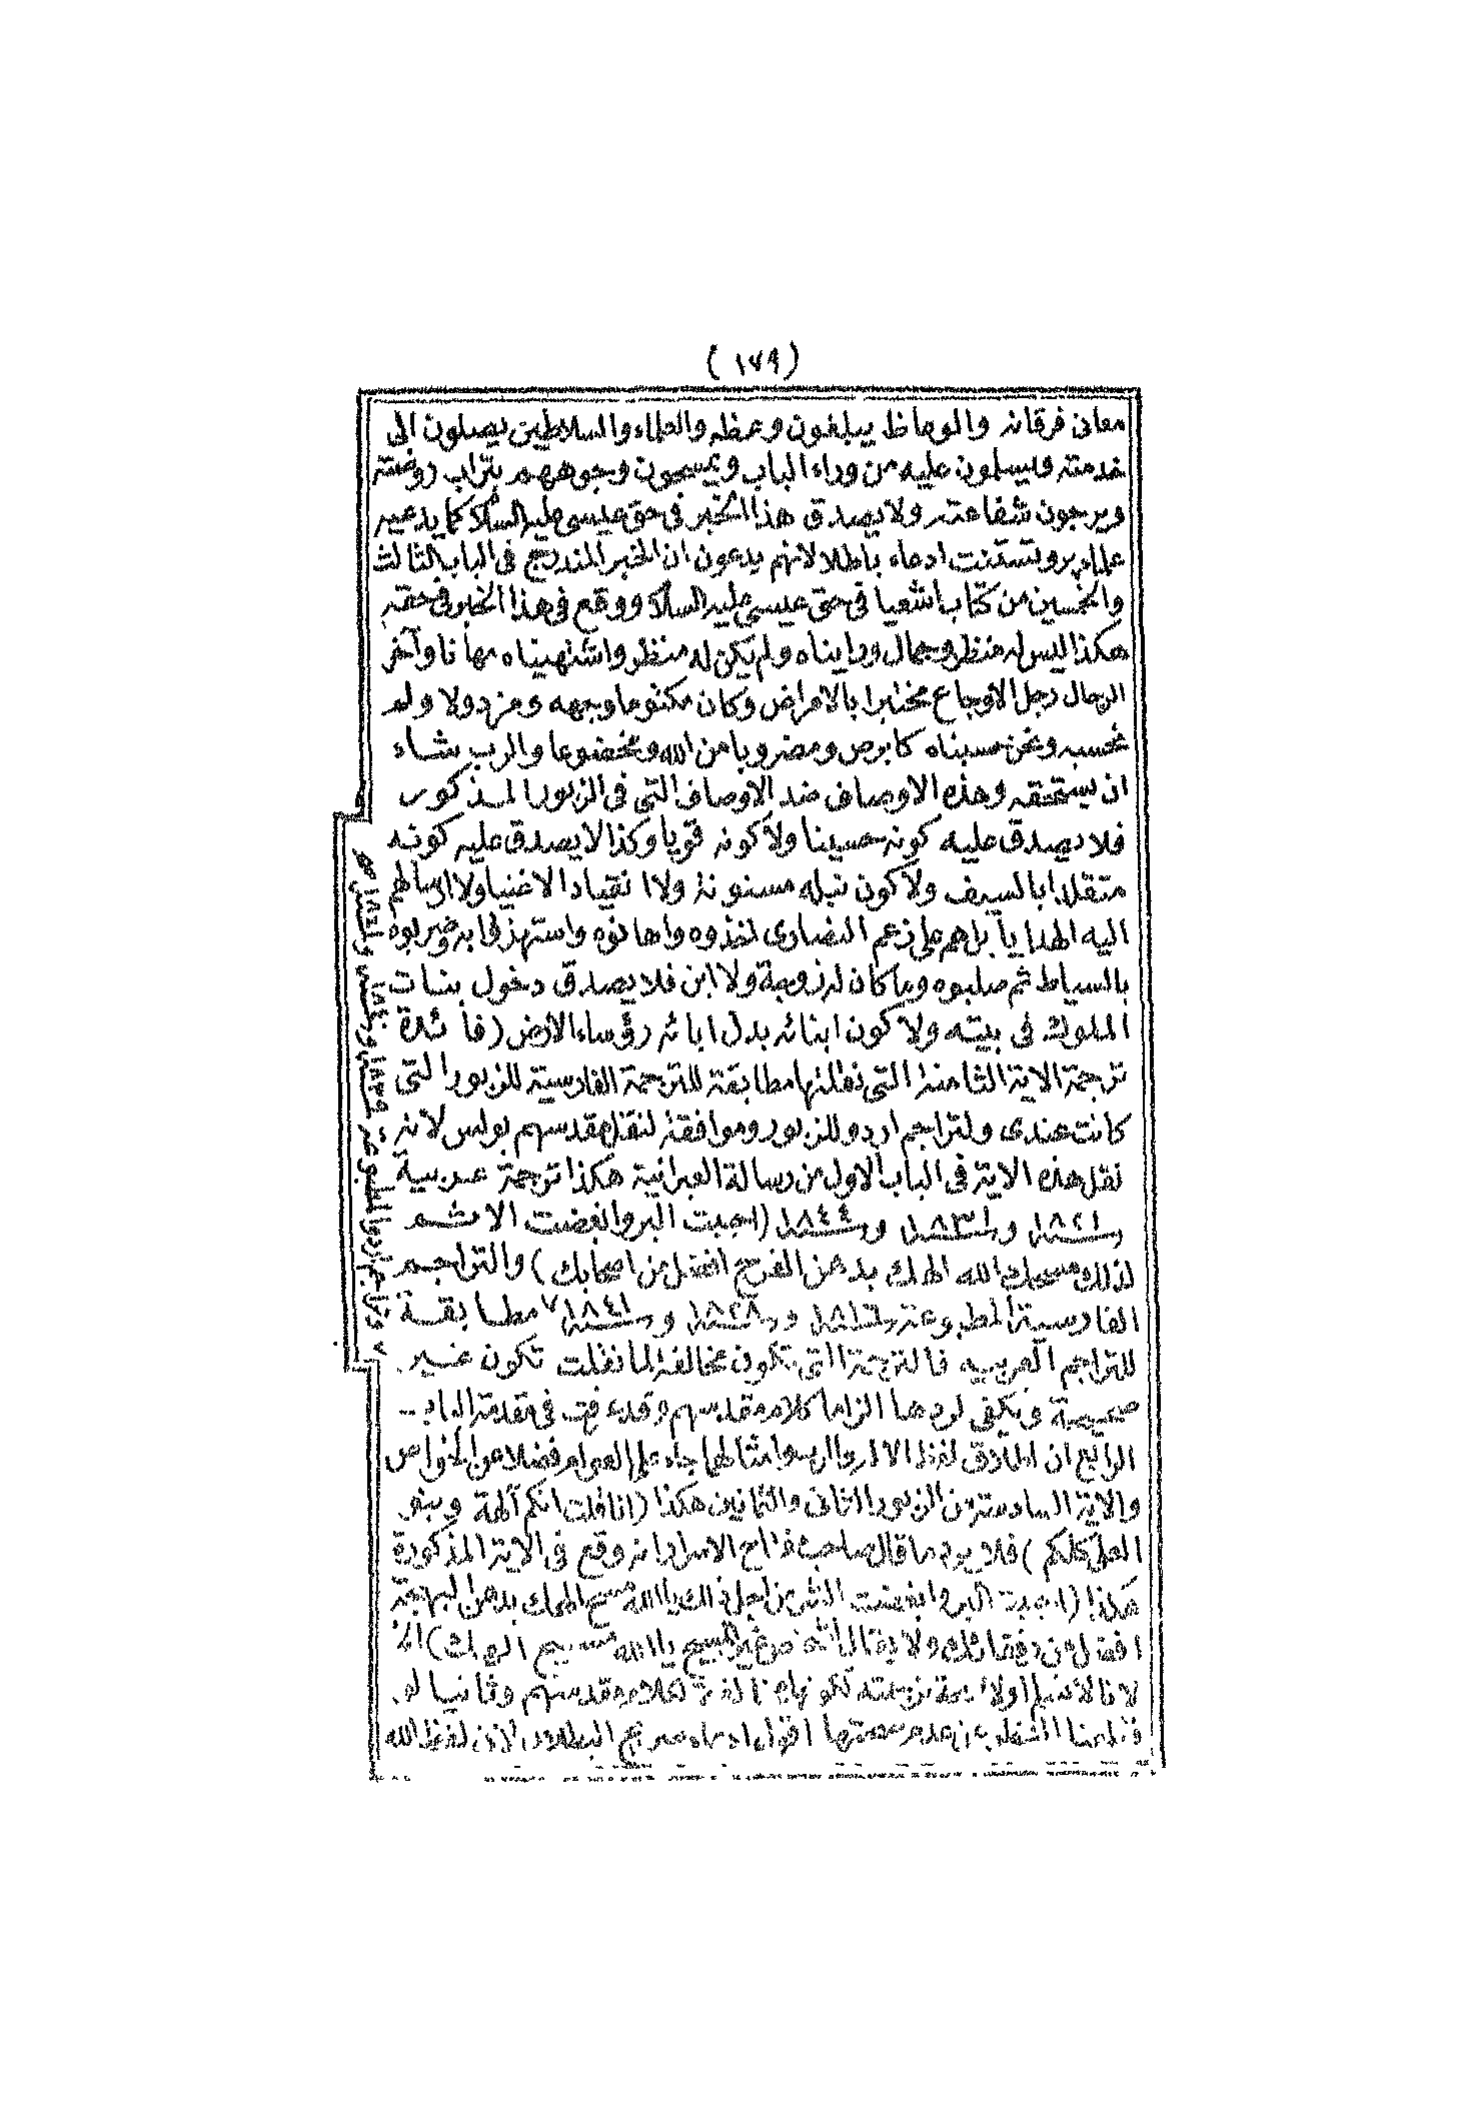 (١٧٩)
معانى فرقانه والوعاظ يبلغون وعظه والعلماء والسلاطين يصلون الى
خدمته ويسلمون عليه من وراء الباب ويمسحون وجوههم بتراب روضته
ويرجون شفاعته ولا يصدق هذا الخبر فى حق عيسى عليه السلام كما يدعيه
علماء پروتستنت ادعاء باطلا لانهم يدعون ان الخبر المندرج فى الباب الثالث
والخمسين من كتاب اشعيا فى حق عيسى عليه السلام ووقع فى هذا الخبر فى حقه
هكذا ليس له منظر وجمال ورايناه ولم يكن له منظر واشتهيناه مهانا وآخر
الرجال رجل الاوجاع مختبرا بالامراض وكان مكتوما وجهه ومزدولا ولم
نحسبه ونحن حسبناه كابرص ومضروبا من الله ومخضوعا والرب شاء
ان يستحقه وهذه الاوصاف ضد الاوصاف التى فى الزبور المذكور
فلا يصدق عليه كونه حسينا ولا كونه قويا وكذا لا يصدق عليه كونه
متقلدا بالسيف ولا كون نبله مسنونة ولا انقياد الاغنيا ولا ارسالهم
اليه الهدايا بل هم على زعم النصارى اخذوه واهانوه واستهزؤا به وضربوه
بالسياط ثم صلبوه وما كان له زوجة ولا ابن فلا يصدق دخول بنات
الملوك فى بيته ولا كون ابنائه بدل ابائه رؤساء الارض (فائدة
ترجمة الاية الثامنة التى نقلتها مطابقة للترجمة الفارسية للزبور التى
كانت عندى ولتراجم اردو للزبور وموافقة لنقل مقدسهم بولس لانه
نقل هذه الاية فى الباب الاول من رسالة العبرانية هكذا ترجمة عربية
سنة ١٨٢١ وسنة ١٨٣١ وسنة ١٨٤٤ (احببت البر وابغضت الاثم
لذلك مسحك الله الهك بدهن الفرح افضل من اصحابك) والتراجم
الفارسية المطبوعة سنة ١٨١٦ وسنة ١٨٢٨ وسنة ١٨٤١ ٧ مطابقة
للتراجم العربيه فالترجمة التى تكون مخالفة لما نقلت تكون غير
صحيحة ويكفى لردها الزاما كلام مقدسهم وقد عرفت فى مقدمة الباب
الرابع ان اطلاق لفظ الاله والرب وامثالهما جاء على العوام فضلا عن الخواص
والاية السادسة من الزبور الثانى والثمانين هكذا (انا قلت انكم آلهة وبنو
العلى كلكم) فلا يرد ما قال صاحب مفتاح الاسرار انه وقع فى الاية المذكورة
هكذا (احببت البر وابغضت الشر من اجل ذلك يا الله مسح الهك بدهن البهجة
افضل من رفقائك ولا يقال لشخص غير المسيح يا الله مسح الهك) الخ
لانا لا نسلم اولا صحة ترجمته لكونها مخالفة لكلام مقدسهم وثانيا لو
قطعنا النظر عن عدم صحتها اقول ادعاءه صريح البطلان لان لفظ الله